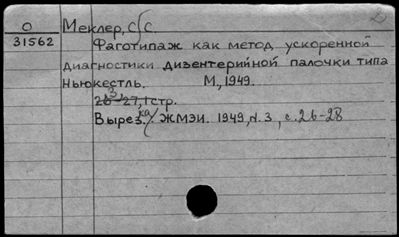 О Меклер, С.С.
31562 Фаготипаж как метод ускоренной
диагностики дизентерийной палочки типа
Ньюкестль. М., 1949.
26-27, 1 стр.
Вырез. ЖМЭИ. 1949, N. 3, с. 26-28